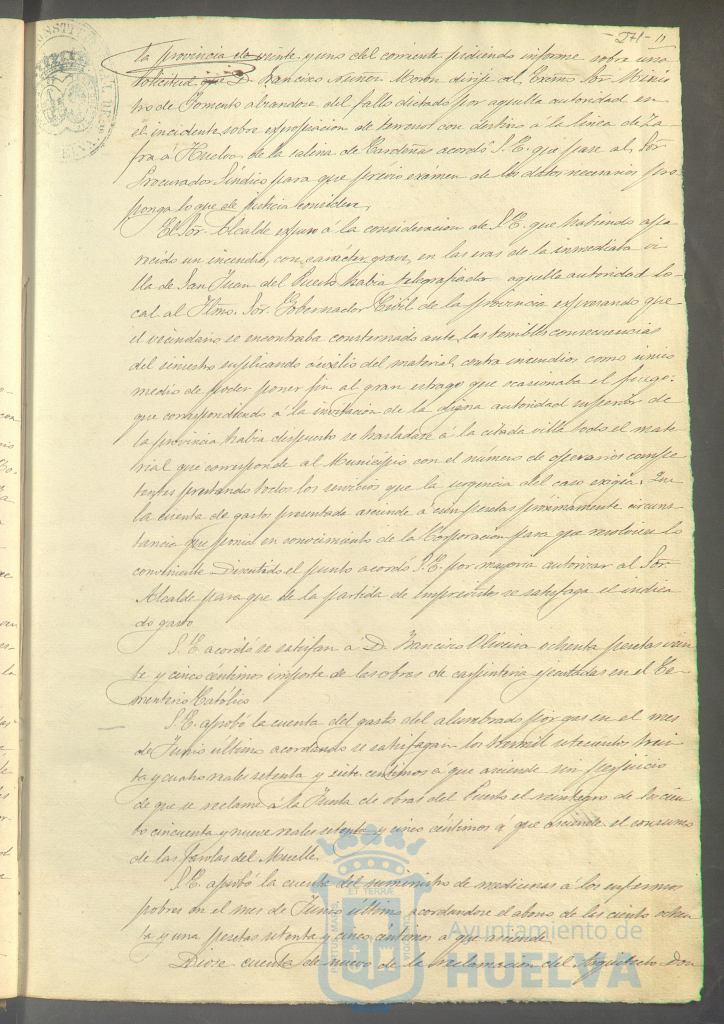 -271- 11
la provincia de veinte y uno del corriente pidiendo informe sobre una
solicitud que D. Francisco Nuñez Moron dirije al Excmo Sor. Minis
tro de Fomento alzandose del fallo dictado por aquella autoridad en
el incidente sobre expropiacion de terrenos con destino á la linea de Za
fra á Huelva de la salina de Cardeñas acordó S.E. que pase al Sor.
Procurador Sindico para que previo exámen de los datos necesarios pro
ponga lo que de justicia considere.
El Sor. Alcalde expuso á la consideracion de S.E. que habiendo apa
recido un incendio, con carácter grave, en las eras de la inmediata vi
lla de San Juan del Puerto habia telegrafiado aquella autoridad lo-
cal al Iltmo. Sor. Gobernador Civil de la provincia expresando que
el vecindario se encontraba consternado ante las temibles consecuencias
del siniestro suplicando ausilio del material contra incendios como único
medio de poder poner fin al gran estrago que ocasionaba el fuego:
que correspondiendo á la invitacion de la digna autoridad superior de
la provincia habia dispuesto se trasladase á la citada villa todo el mate
rial que corresponde al Municipio con el numero de operarios compe
tentes prestando todos los servicios que la urgencia del caso exigia. Que
la cuenta de gastos presentada asciende á cien pesetas próximamente circuns
tancia que ponia en conocimiento de la Corporacion para que resolviera lo
conveniente. Discutido el punto acordó S.E. por mayoria autorizar al Sor.
Alcalde para que de la partida de Imprevistos se satisfaga el indica
do gasto
S.E. acordó se satisfan á D. Francisco Oliveira ochenta pesetas vein
te y cinco céntimos importe de las obras de carpinteria ejecutadas en el Ce-
menterio Católico
S.E. aprobó la cuenta del gasto del alumbrado por gas en el mes
de Junio último acordando se satisfagan los tres mil setecientos trein
ta y cuatro reales setenta y siete céntimos a que asciende sin perjuicio
de que se reclame á la Junta de obras del Puerto el reintegro de los cien
to cincuenta y nueve reales setenta y cinco céntimos á que asciende el consumo
de las farolas del Muelle.
S.E. aprobó la cuenta del suministro de medicinas á los enfermos
pobres en el mes de Junio último acordandose el abono de las ciento ochen
ta y una pesetas setenta y cinco céntimos a que asciende
Diose cuenta de nuevo de la reclamacion del Arquitecto Don
Ayuntamiento de
HUELVA